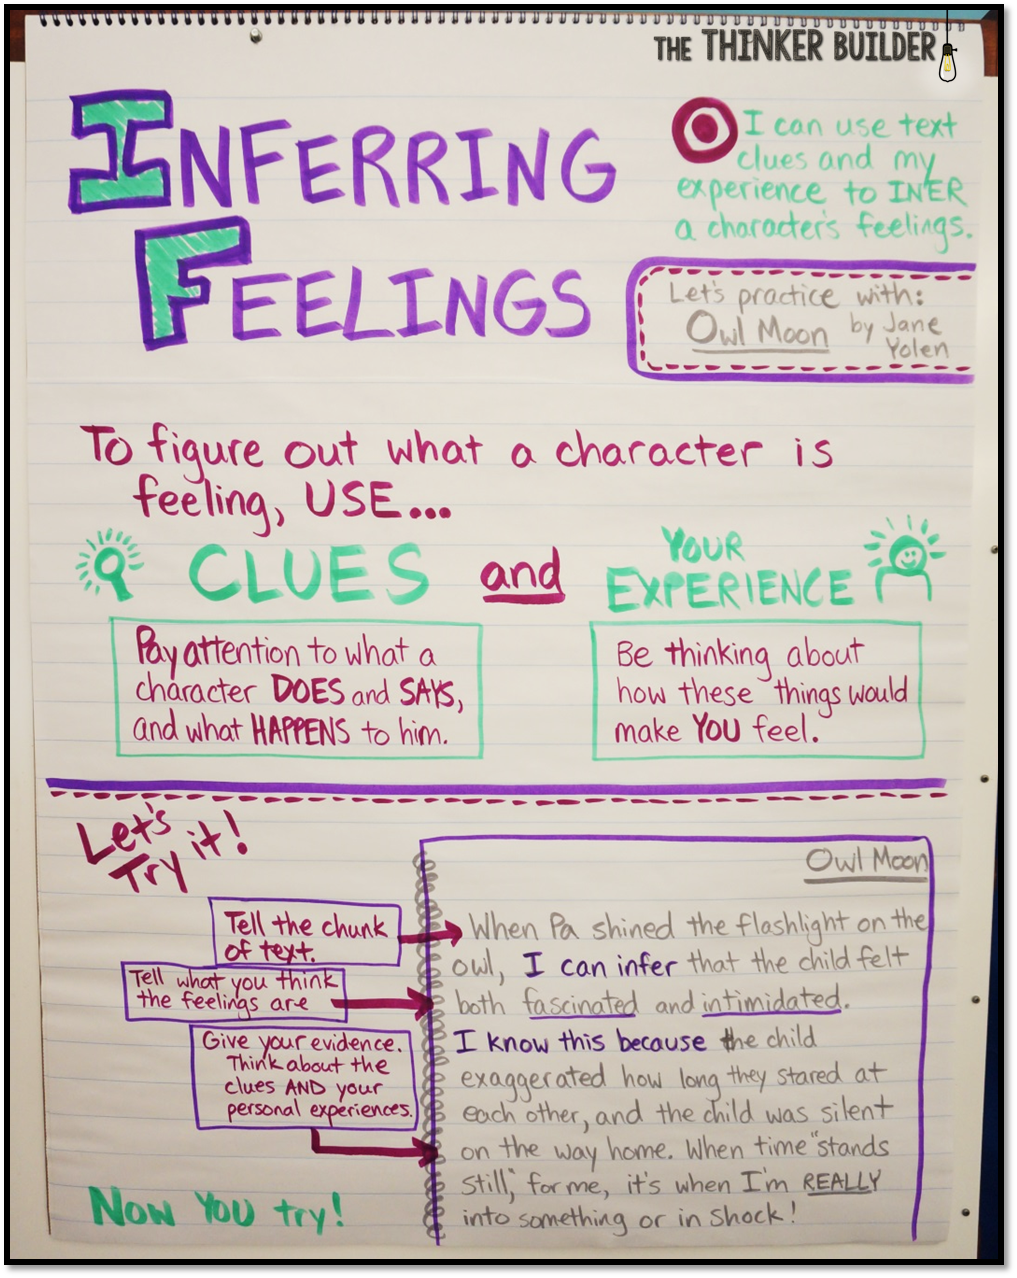 THE THINKER BUILDER
INFERRING
FEELINGS
I can use text
clues and my
experience to INER
a character's feelings.
Let's practice with:
Owl Moon by Jane
Yolen
To figure out what a character is
feeling, USE...
CLUES and YOUR
EXPERIENCE
Pay attention to what a
character DOES and SAYS,
and what HAPPENS to him.
Be thinking about
how these things would
make YOU feel.
Let's
Try it!
Tell the chunk
of text.
Tell what you think
the feelings are
Give your evidence.
Think about the
clues AND your
personal experiences.
Now YOU try!
Owl Moon
When Pa shined the flashlight on the
owl, I can infer that the child felt
both fascinated and intimidated.
I know this because the child
exaggerated how long they stared at
each other, and the child was silent
on the way home. When time "stands
still," for me, it's when I'm REALLY
into something or in shock!